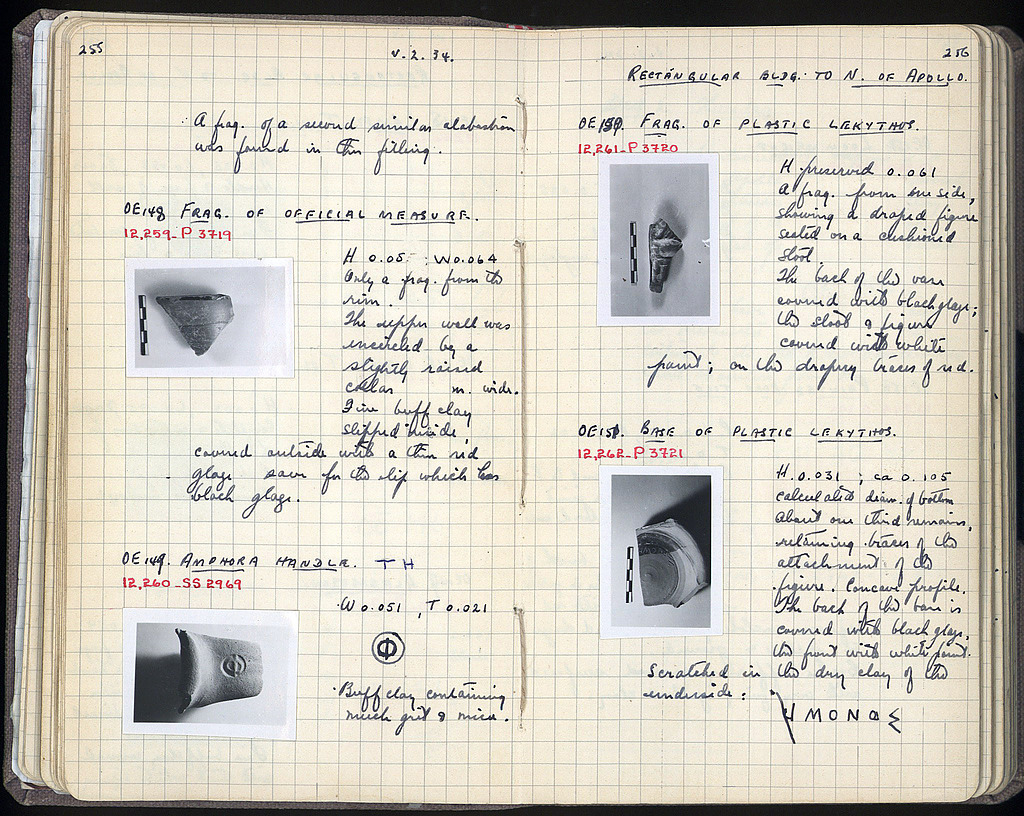 255
V. 2. 34.
A frag. of a second similar alabastron
was found in this filling.
OE148 FRAG. OF OFFICIAL MEASURE.
12,259_P 3719
H 0.05 ; W 0.064
Only a frag. from the
rim.
The upper wall was
encircled by a
slightly raised
collar m. wide.
Fine buff clay
slipped inside,
covered outside with a thin red
glaze save for the slip which has
black glaze.
OE149. AMPHORA HANDLE. TH
12,260_SS 2969
W 0.051 , T 0.021
Buff clay containing
much grit & mica.
256
RECTANGULAR BLDG. TO N. OF APOLLO.
FRAG. OF PLASTIC LEKYTHOS.
12,261_P 3720
H. preserved 0.061
A frag. from one side,
showing a draped figure
seated on a cushioned
stool.
The back of the vase
covered with black glaze;
the stool & figure
covered with white
paint; on the drapery traces of red.
OE151. BASE OF PLASTIC LEKYTHOS.
12,262_P 3721
H. 0.031 ; ca 0.105
calculated diam. of bottom
About one third remains,
retaining traces of the
attachment of the
figure. Concave profile.
The back of the base is
covered with black glaze,
the front with white paint.
Scratched in the dry clay of the
underside:
ΜΟΝΟΣ